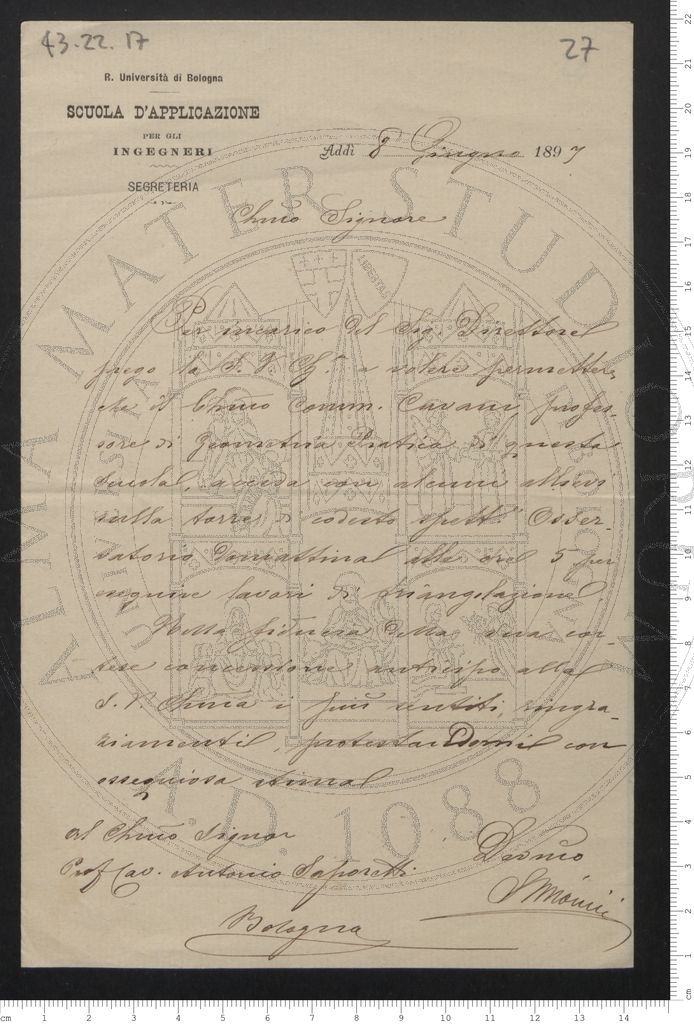 43.22.17
27
R. Università di Bologna
SCUOLA D'APPLICAZIONE
PER GLI
INGEGNERI
SEGRETERIA
Addì 8 Giugno 1897
Chmo Signore
Per incarico del Sig. Direttore
prego la S. V. Ill.a a volere permette-
re che il Chmo Comm. Cavani, profes-
sore di Geometria Pratica di questa
Scuola, acceda con alcuni allievi
sulla torre di codesto spett. Osser-
vatorio domattina alle ore 5 per
eseguire lavori di triangolazione
Nella fiducia della sua cor-
tese concessione anticipo alla
S. V. Chma i più sentiti ringra-
ziamenti, protestandomi con
ossequiosa stima
Al Chmo Signor
Prof Cav. Antonio Saporetti
Bologna
Devmo
ALMA MATER STUDIORUM
A.D. 1088
LIBERTAS